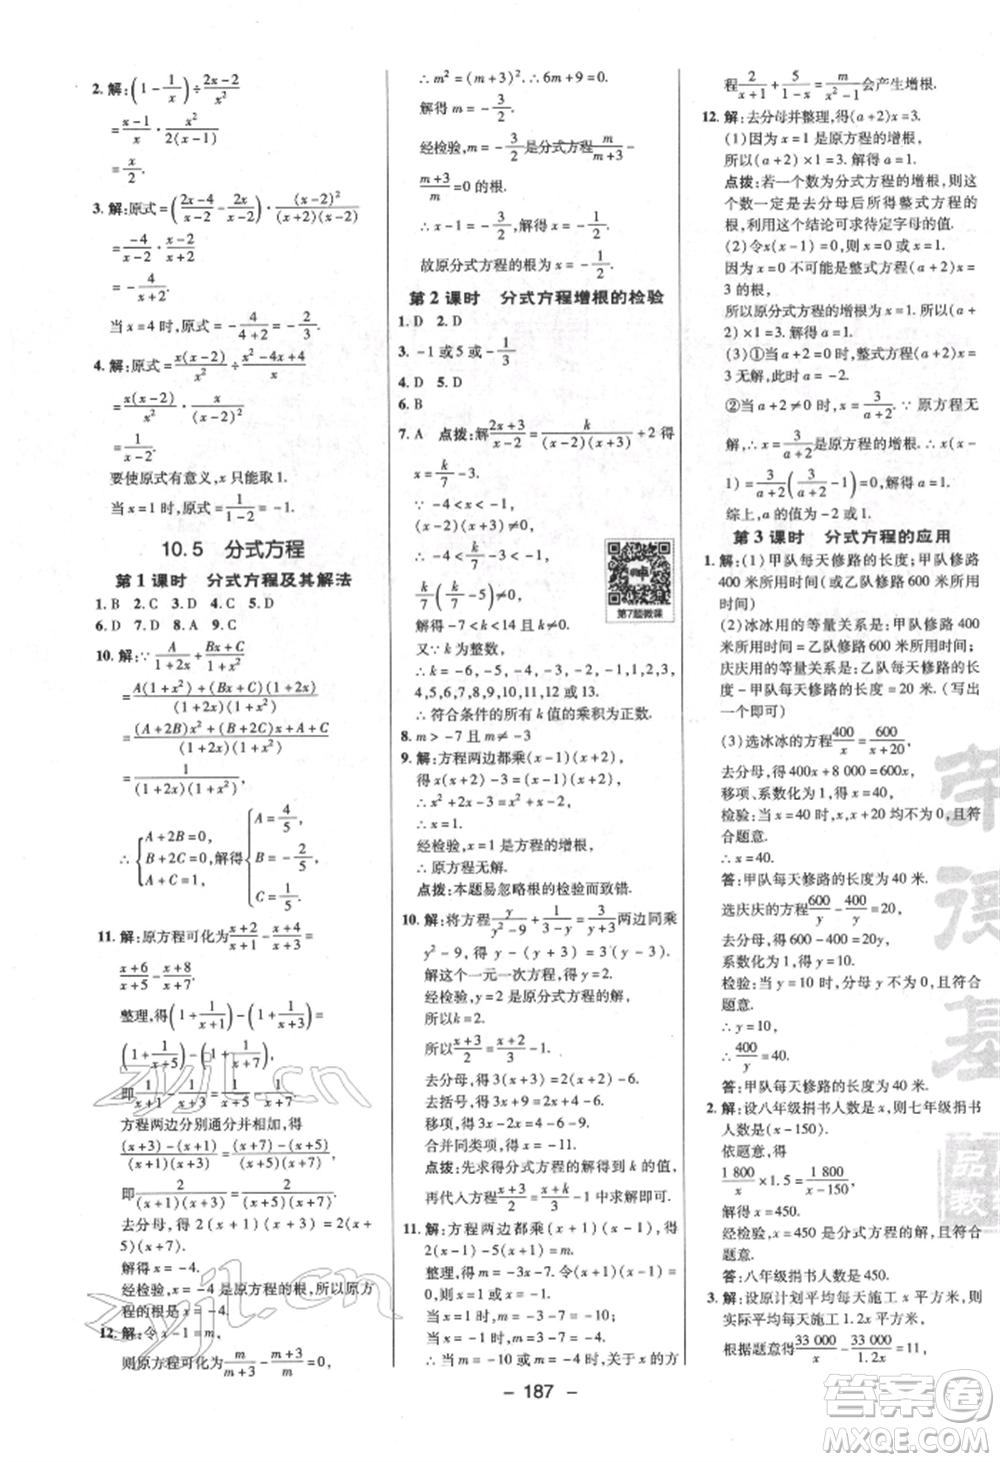 2. 解:(1-1/x)÷(2x-2)/x²
=(x-1)/x·x²/2(x-1)
=x/2.
3. 解:原式=((2x-4)/(x-2)-2x/(x-2))·(x-2)²/(x+2)(x-2)
=-4/(x-2)·(x-2)/(x+2)
=-4/(x+2).
当x=4时,原式=-4/(4+2)=-2/3.
4. 解:原式=x(x-2)/x³÷(x²-4x+4)/x
=x(x-2)/x³·x/(x-2)²
=1/(x-2).
要使原式有意义,x只能取1.
当x=1时,原式=1/(1-2)=-1.
10.5 分式方程
第1课时 分式方程及其解法
1. B 2. C 3. D 4. C 5. D
6. D 7. D 8. A 9. C
10. 解:∵A/(1+2x)+(Bx+C)/(1+x²)
=(A(1+x²)+(Bx+C)(1+2x))/((1+2x)(1+x²))
=((A+2B)x²+(B+2C)x+A+C)/((1+2x)(1+x²))
=1/((1+2x)(1+x²)),
∴{A+2B=0,B+2C=0,A+C=1,解得{A=4/5,B=-2/5,C=1/5.
11. 解:原方程可化为(x+2)/(x+1)-(x+4)/(x+3)=
(x+6)/(x+5)-(x+8)/(x+7).
整理,得(1+1/(x+1))-(1+1/(x+3))=
(1+1/(x+5))-(1+1/(x+7)),
即1/(x+1)-1/(x+3)=1/(x+5)-1/(x+7).
方程两边分别通分并相加,得
((x+3)-(x+1))/((x+1)(x+3))=((x+7)-(x+5))/((x+5)(x+7)),
即2/((x+1)(x+3))=2/((x+5)(x+7)).
去分母,得2(x+1)(x+3)=2(x+5)(x+7).
解得x=-4.
经检验,x=-4是原方程的根,所以原方程的根为x=-4.
12. 解:令x-1=m,
则原方程可化为m/(m+3)-(m+3)/m=0.
∴m²=(m+3)².∴6m+9=0.
解得m=-3/2.
经检验,m=-3/2是分式方程m/(m+3)-
(m+3)/m=0的根.
∴x-1=-3/2.∴x=-1/2.
故原分式方程的根为x=-1/2.
第2课时 分式方程增根的检验
1. D 2. D
3. -1或5或-1/3
4. D 5. D
6. B
7. A 点拨:解(2x+3)/(x-2)=k/((x-2)(x+3))+2得
x=k/7-3.
∵-4<x<-1,
∴-4<k/7-3<-1,
k/7(k/7-5)≠0,
解得-7<k<14且k≠0.
又∵k为整数,
∴k=-6,-5,-4,-3,-2,-1,1,2,3,
4,5,6,7,8,9,10,11,12或13.
∴符合条件的所有k值的乘积为正数.
8. m>-7且m≠-3
9. 解:方程两边都乘(x-1)(x+2),
得x(x+2)-(x-1)(x+2)=3.
∴x²+2x-x²-x+2=3.
∴x=1.
经检验,x=1是方程的增根,
∴原方程无解.
点拨:本题易忽略根的检验而致错.
10. 解:将方程y/(y²-9)+1/(y+3)=3/(y-3)两边同乘
y²-9,得y+(y-3)=3(y+3).
解这个一元一次方程,得y=2.
经检验,y=2是原分式方程的解,
所以k=2.
所以(x+3)/2=(x+2)/3-1.
去分母,得3(x+3)=2(x+2)-6.
去括号,得3x+9=2x+4-6.
移项,得3x-2x=4-6-9.
合并同类项,得x=-11.
点拨:先求得分式方程的解得到k的值,
再代入方程(x+3)/2=(x+k)/3-1求解即可.
11. 解:方程两边都乘(x+1)(x-1),得
2(x-1)-5(x+1)=m.
整理,得m=-3x-7.令(x+1)(x-1)
=0,得x=±1.
当x=1时,m=-3-7=-10;
当x=-1时,m=3-7=-4.
∴当m=-10或m=-4时,关于x的方
程2/(x+1)+5/(1-x)=m/(x²-1)会产生增根.
12. 解:去分母并整理,得(a+2)x=3.
(1)因为x=1是原方程的增根,
所以(a+2)×1=3.解得a=1.
点拨:若一个数为分式方程的增根,则这个数一定是去分母后所得整式方程的根,利用这个结论可求待定字母的值.
(2)令x(x-1)=0,解得x=0或x=1.
因为x=0不可能是整式方程(a+2)x=
3的根,
所以原分式方程的增根为x=1.
所以(a+2)×1=3.解得a=1.
(3)①当a+2=0时,整式方程(a+2)x=
3无解,此时a=-2.
②当a+2≠0时,x=3/(a+2).∵原方程无
解,∴x=3/(a+2)是原方程的增根.∴x(x-
1)=3/(a+2)(3/(a+2)-1)=0.解得a=1.
综上,a的值为-2或1.
第3课时 分式方程的应用
1. 解:(1)甲队每天修路的长度;甲队修路
400米所用时间(或乙队修路600米所用时间)
(2)冰冰用的等量关系是:甲队修路400
米所用时间=乙队修路600米所用时间;
庆庆用的等量关系是:乙队每天修路的长度-甲队每天修路的长度=20米.(写出一个即可)
(3)选冰冰的方程400/x=600/(x+20),
去分母,得400x+8 000=600x,
移项、系数化为1,得x=40,
检验:当x=40时,x,x+20均不为0,且符合题意.
∴x=40.
答:甲队每天修路的长度为40米.
选庆庆的方程600/y-400/y=20,
去分母,得600-400=20y,
系数化为1,得y=10,
检验:当y=10时,分母y不为0,且符合题意.
∴y=10,
∴400/y=40.
答:甲队每天修路的长度为40米.
2. 解:设八年级捐书人数是x,则七年级捐书人数是(x-150).
依题意,得
1 800/x×1.5=1 800/(x-150),
解得x=450.
经检验,x=450是分式方程的解,且符合题意.
答:八年级捐书人数是450.
3. 解:设原计划平均每天施工x平方米,则
实际平均每天施工1.2x平方米.
根据题意得33 000/x-33 000/1.2x=11,
第7题微课
- 187 -
zyjl.cn
答案圈
MXQE.COM